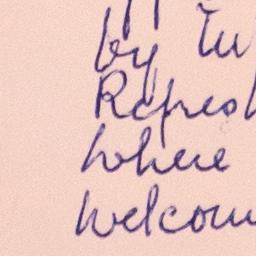 by Tu
Repres
where
welcom